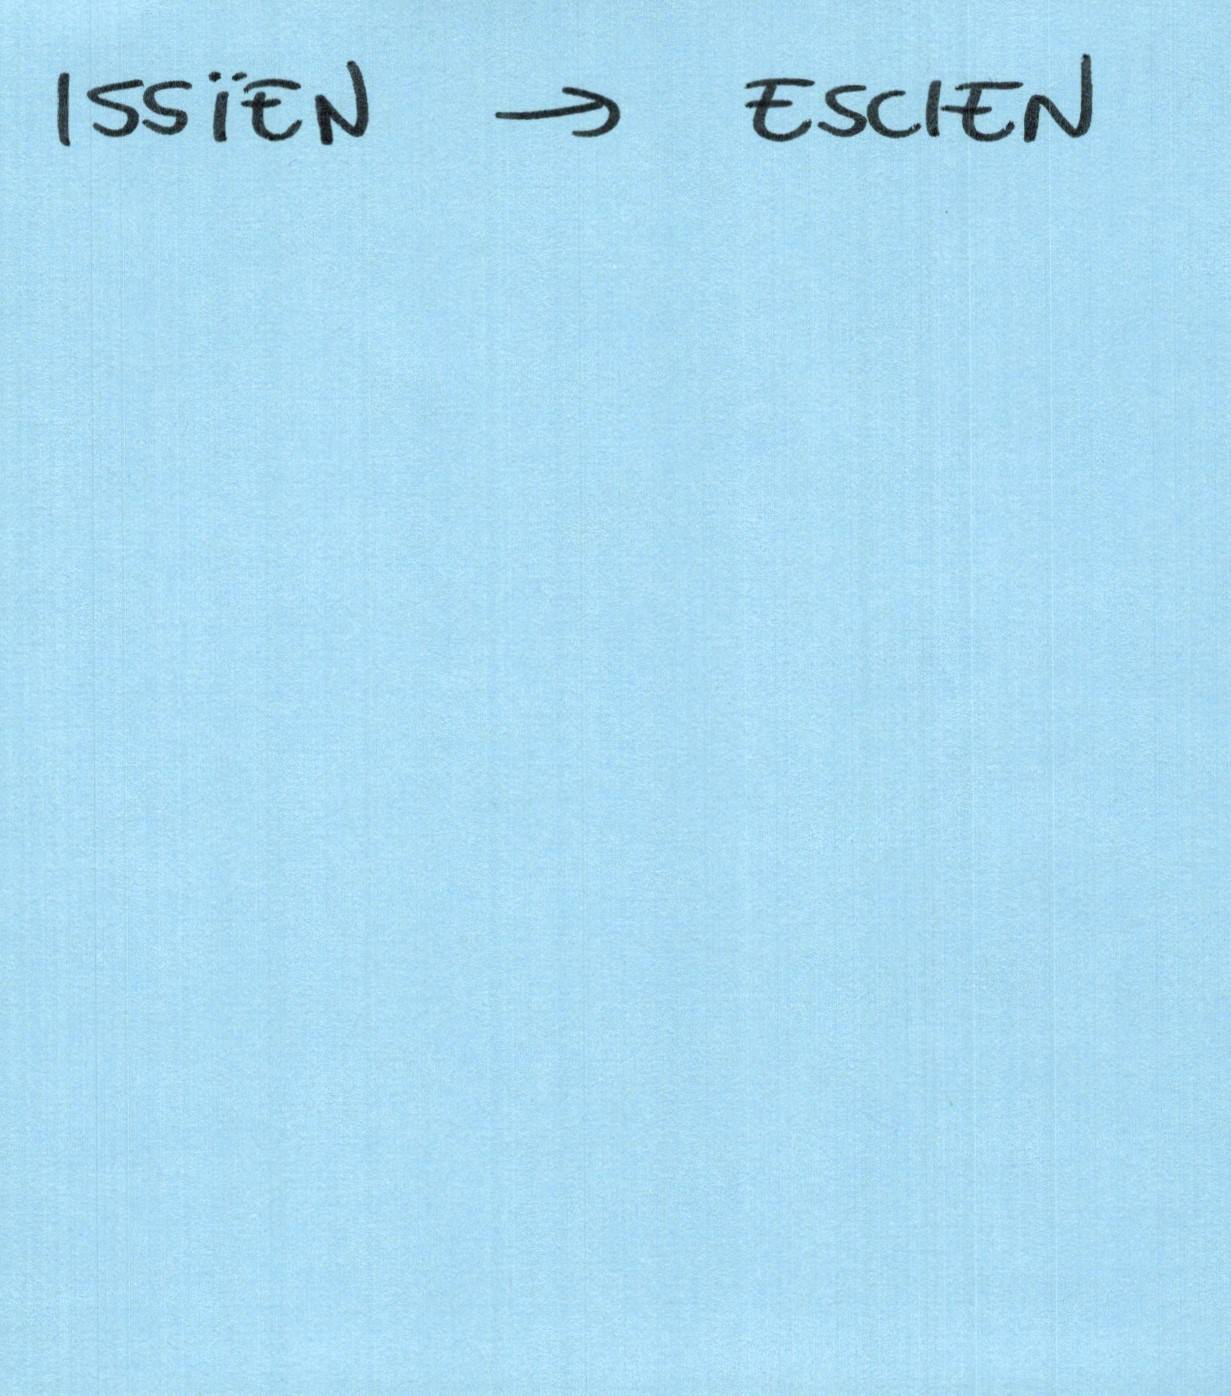 ISSÏEN → ESCIEN